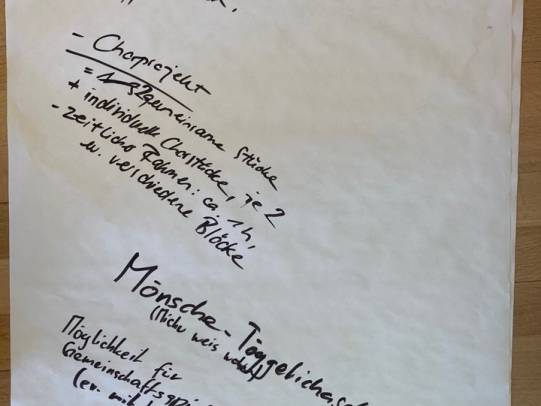 - Chorprojekt
= 2 gemeinsame Stücke
+ individuelle Chorstücke, je 2
- zeitlicher Rahmen: ca. 1 h,
in verschiedene Blöcke
Mönsche-Töggelichasch
(Michu weis
Möglichkeit für
Gemeinschafts
(ev. mit